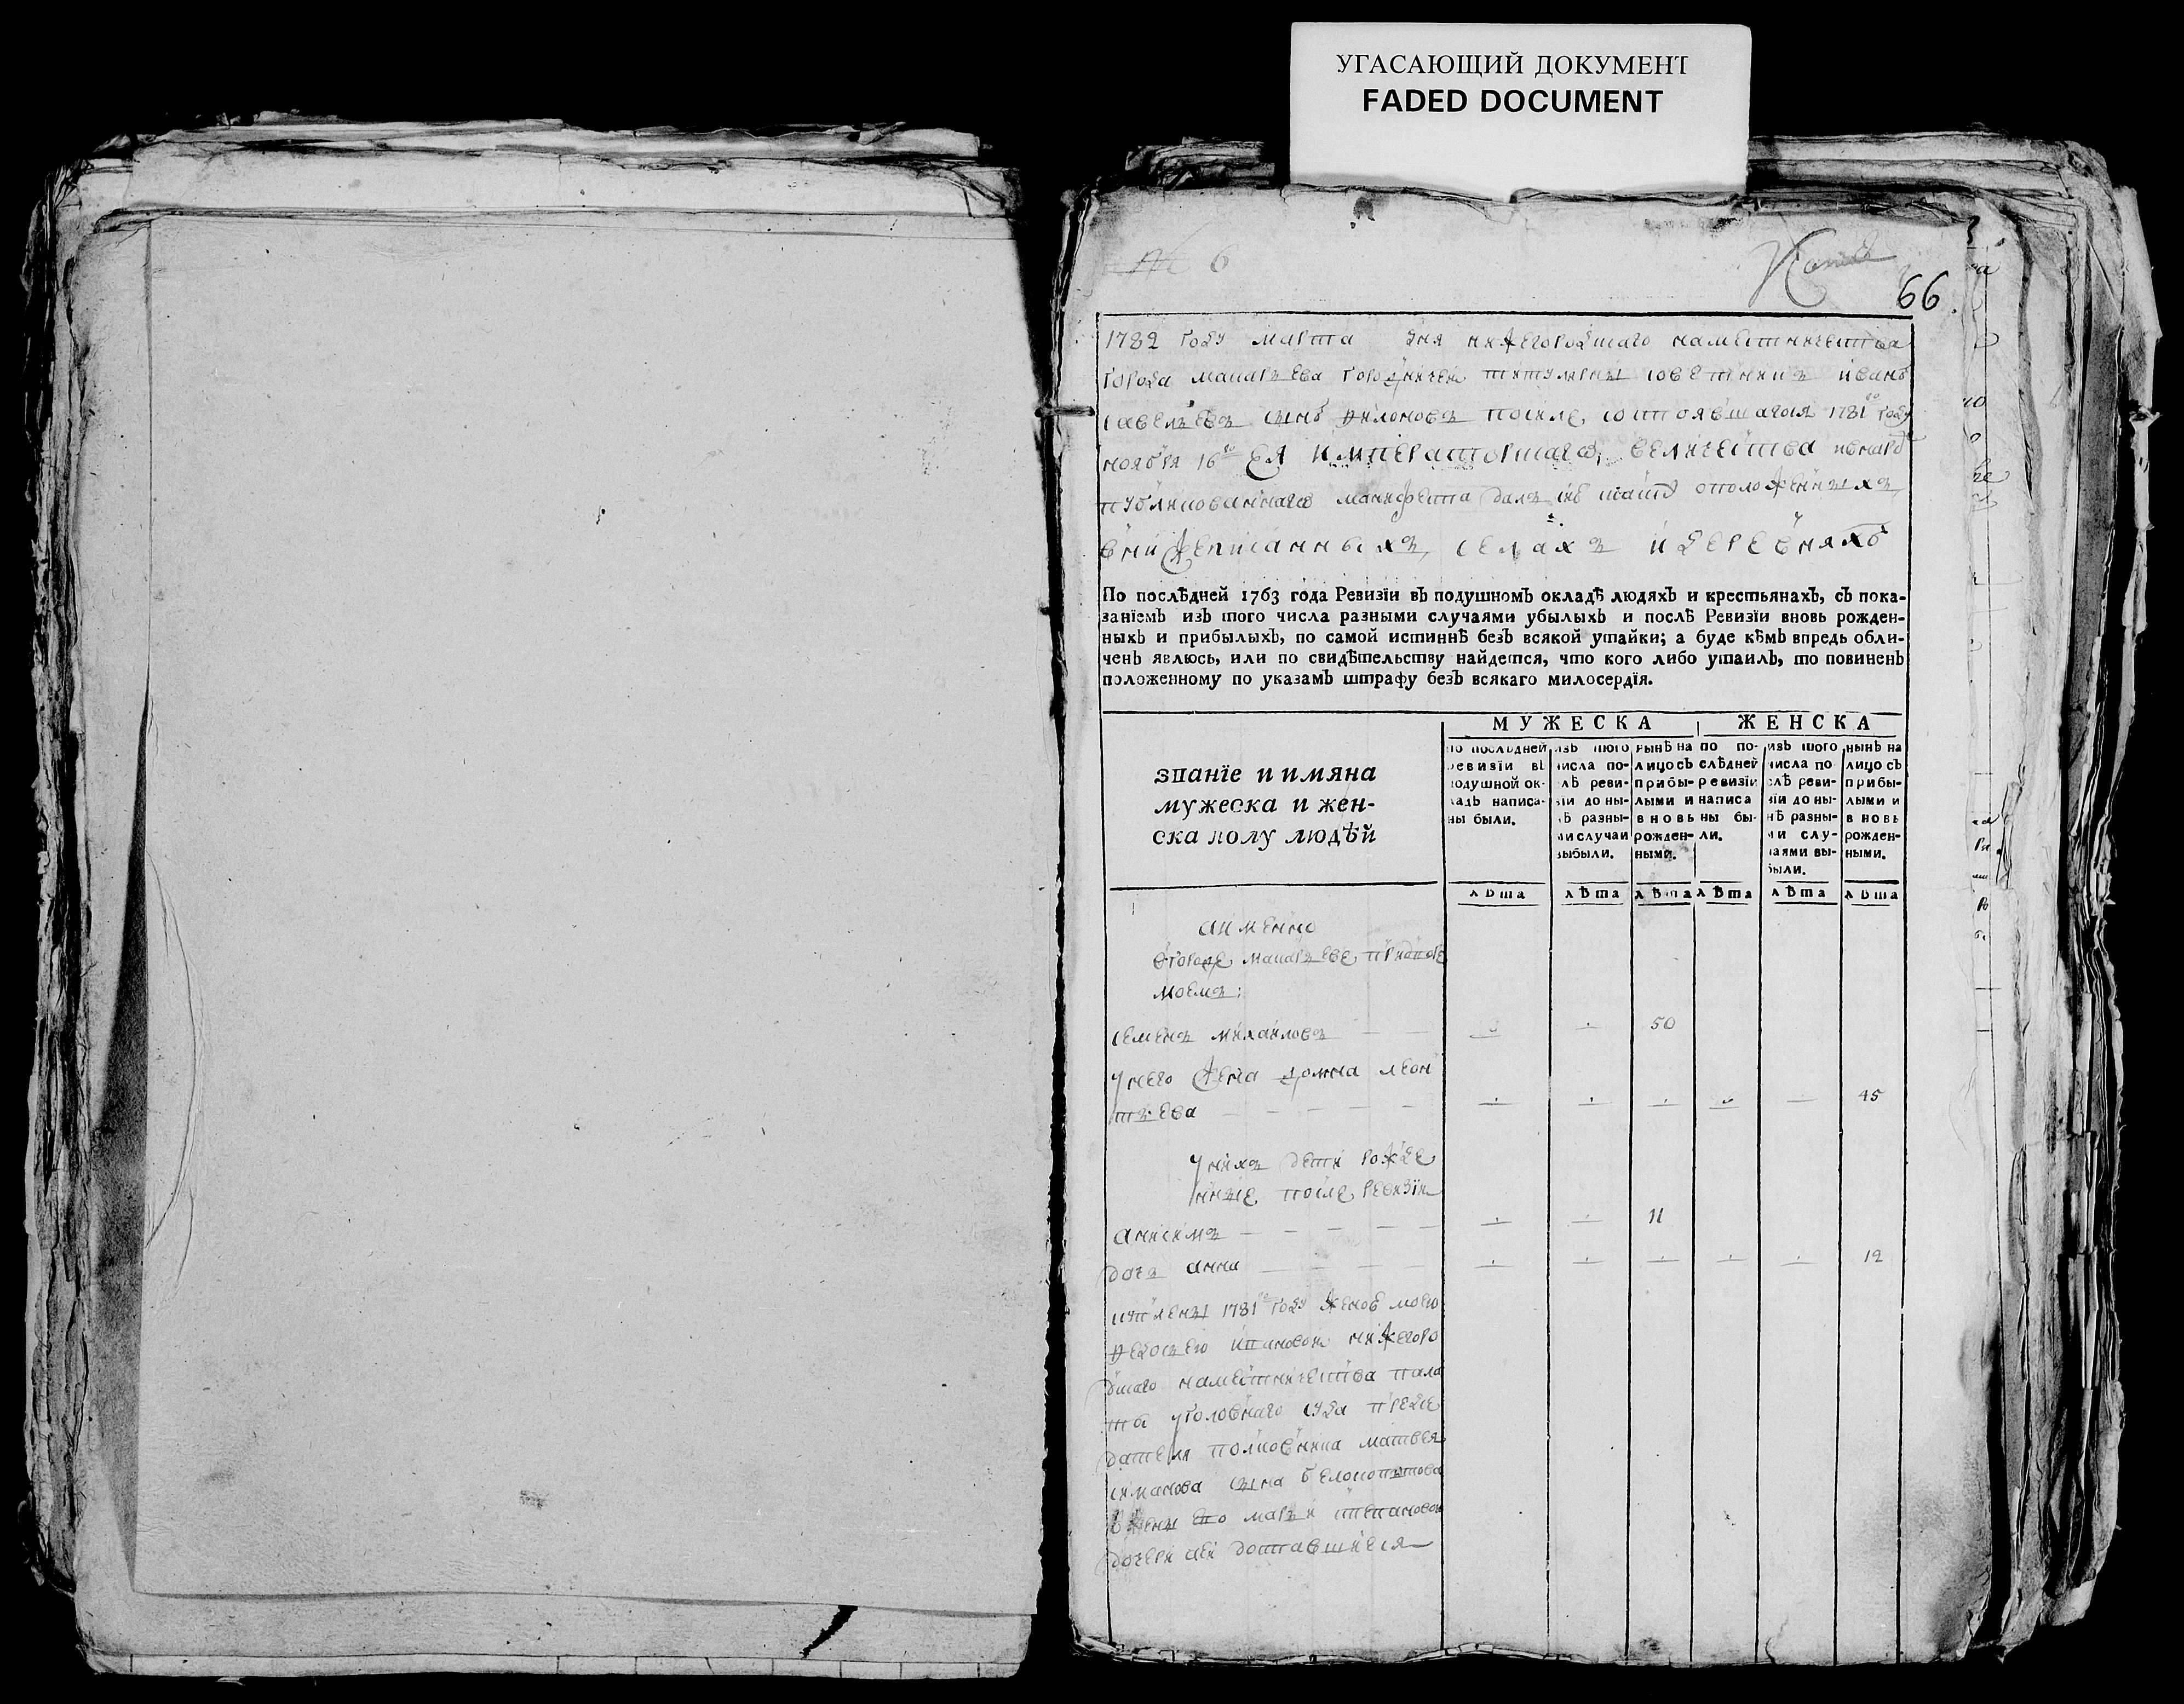 УГАСАЮЩИЙ ДОКУМЕНТ
FADED DOCUMENT
№ 6
66
1782 году марта дня нижегородскаго наместничества
города макарьева городничей титулярны советникъ иванъ
савельевъ сынъ филоновъ после состоявшагося 1781го году
ноября 16го ея императорскаго величества
публикованнаго манифеста далъ сию скаску оположенныхъ
внижеписанныхъ селахъ идеревняхъ
По послѣдней 1763 года Ревизїи въ подушномъ окладѣ людяхъ и крестьянахъ, съ пока-
занїемъ изъ того числа разными случаями убылыхъ и послѣ Ревизїи вновь рожден-
ныхъ и прибылыхъ, по самой истиннѣ безъ всякой утайки; а буде кѣмъ впредь обли-
ченъ явлюсь, или по свидѣтельству найдется, что кого либо утаилъ, то повиненъ
положенному по указамъ штрафу безъ всякаго милосердїя.
МУЖЕСКА ЖЕНСКА
званїе и имяна
мужеска и жен-
ска полу людѣй
по послѣдней
ревизїи въ
подушной ок-
ладъ написа-
ны были.
изъ того
числа по-
слѣ реви-
зїи до ны-
нѣ разны-
ми случаи
выбыли.
нынѣ на
лицо съ
прибы-
лыми и
вновь
рожден-
ными.
по по-
слѣдней
ревизїи
написа
ны бы-
ли.
изъ того
числа по
слѣ реви-
зїи до ны-
нѣ разны-
ми слу-
чаями вы-
были.
нынѣ на
лицо съ
прибы-
лыми и
вновь
рожден-
ными.
лѣта лѣта лѣта лѣта лѣта лѣта
аименно
вгороде макарьеве
моемъ:
семенъ михаиловъ — — 50
унего жена домна леон
тьева — — — — — 45
унихъ дети рожде
нные после ревизїи
анисимъ — — — — — 11
дочь анна — — — — 12
куплены 1781го году женою моею
федосьею ивановою нижегоро
дскаго наместничества пала
ты уголовнаго суда предсе
дателя полковника матвея
иванова сына белокопытова
жены ево марьи степановои
дочери аеи доставшиеся